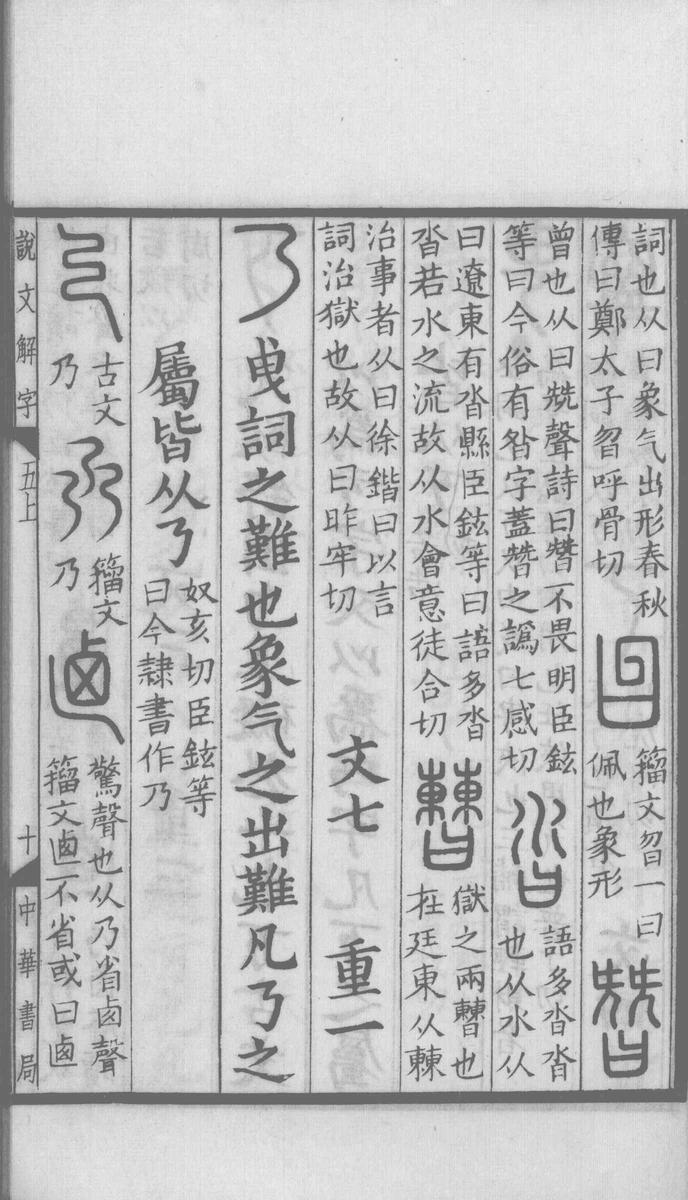 詞也从曰象气出形春秋
傳曰鄭太子曶呼骨切
籀文曶一曰
佩也象形
曾也从曰兓聲詩曰朁不畏明臣鉉
等曰今俗有昝字蓋朁之譌七感切
語多沓沓
也从水从
曰遼東有沓縣臣鉉等曰語多沓
沓若水之流故从水會意徒合切
獄之兩曹也
在廷東从㯥
治事者从曰徐鍇曰以言
詞治獄也故从曰昨牢切
文七 重一
𠄎曳詞之難也象气之出難凡𠄎之
屬皆从𠄎
奴亥切臣鉉等
曰今隸書作乃
古文
乃
籀文
乃
驚聲也从乃省卥聲
籀文𠧟不省或曰𠧟
說文解字 五上 十 中華書局